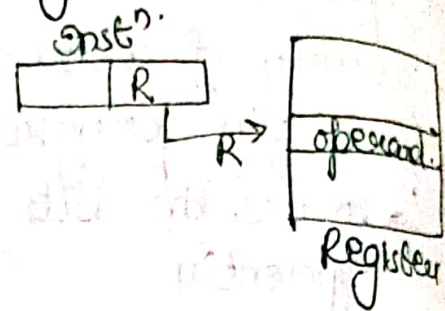 Instⁿ.
R
R
operand
Register